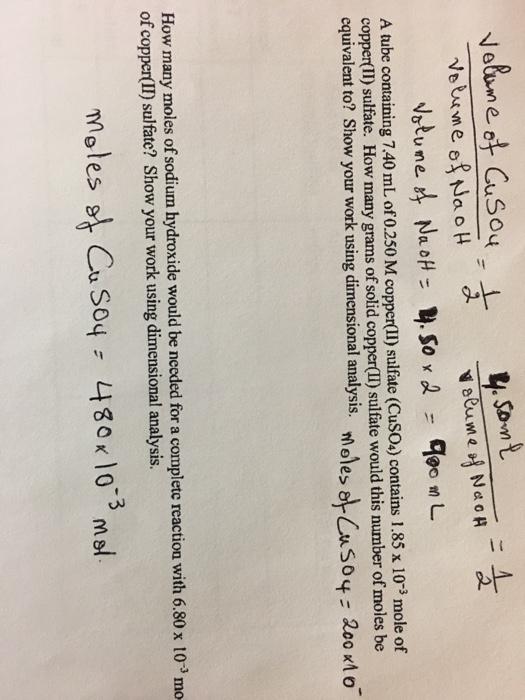 Volume of CuSO4 / Volume of NaOH = 1/2
4.50mL / Volume of NaOH = 1/2
Volume of NaOH = 4.50 x 2 = 900 mL
A tube containing 7.40 mL of 0.250 M copper(II) sulfate (CuSO₄) contains 1.85 x 10⁻³ mole of
copper(II) sulfate. How many grams of solid copper(II) sulfate would this number of moles be
equivalent to? Show your work using dimensional analysis. moles of CuSO4 = 200 x10⁻
How many moles of sodium hydroxide would be needed for a complete reaction with 6.80 x 10⁻³ mo
of copper(II) sulfate? Show your work using dimensional analysis.
Moles of CuSO4 = 480x10⁻³ mol.